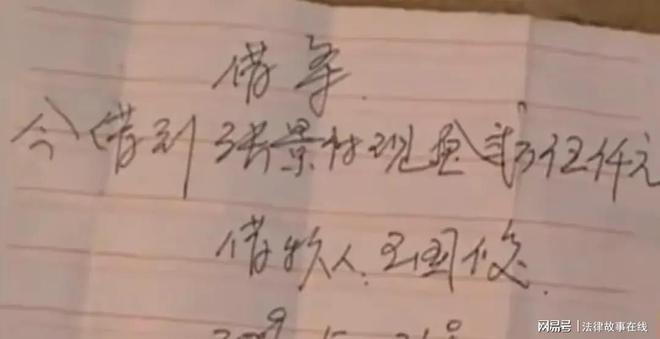 借条
今借到张景村现金贰万伍仟元
借款人.王国俊.
网易号 | 法律故事在线